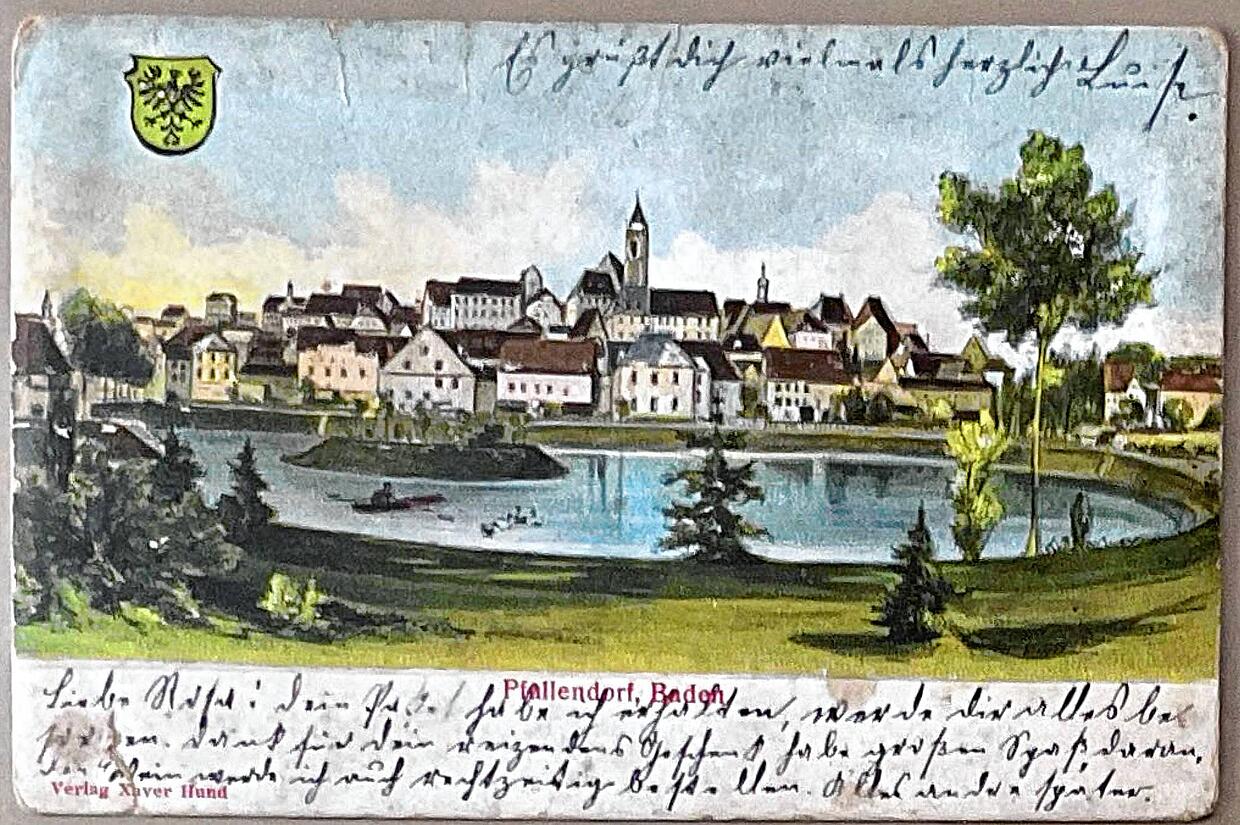 Es grüßt dich vielmals herzlich Luise.
Pfullendorf, Baden
Liebe Rosa! dein Paket habe ich erhalten, werde dir alles be
sorgen. Dank für dein reizendens Geschenk habe großen Spaß daran,
den Wein werde ich auch rechtzeitig bestellen. Alles andre später.
Verlag Xaver Hund